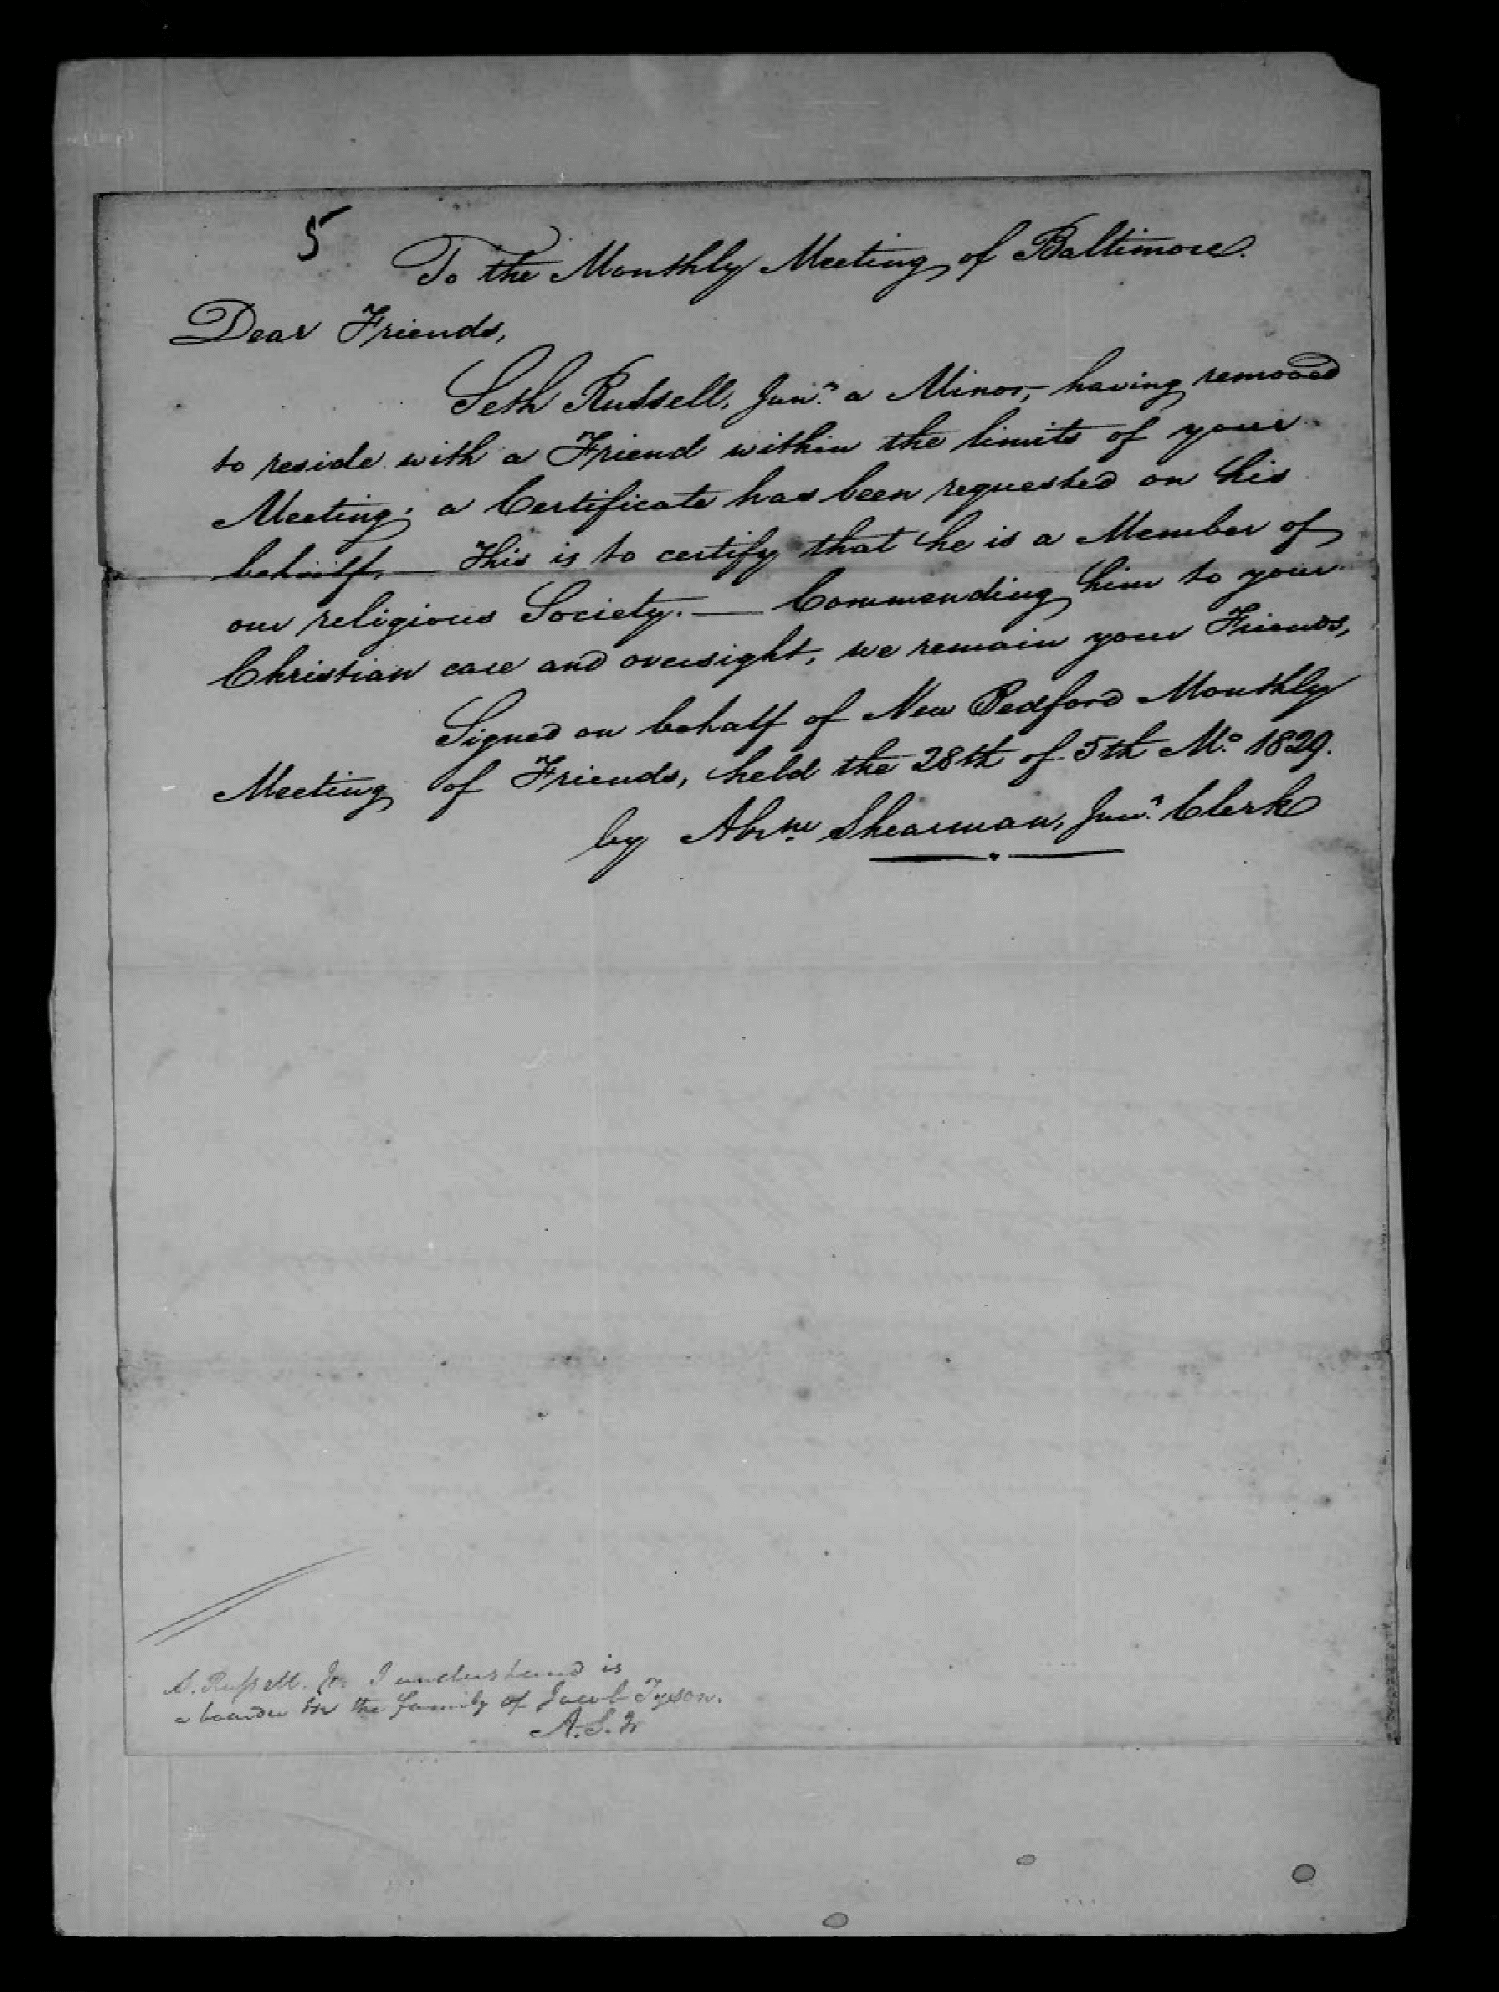 5
To the Monthly Meeting of Baltimore.
Dear Friends,
Seth Russell, Junr. a Minor, having removed
to reside with a Friend within the limits of your
Meeting; a Certificate has been requested on his
behalf, — This is to certify that he is a Member of
our religious Society. — Commending him to your
Christian care and oversight, we remain your Friends,
Signed on behalf of New Bedford Monthly
Meeting of Friends, held the 28th of 5th Mo. 1829.
by Abrm. Shearman, Junr. Clerk
S. Russell. Jr. I understand is
a boarder in the family of Jacob Tyson.
A. S. Jr